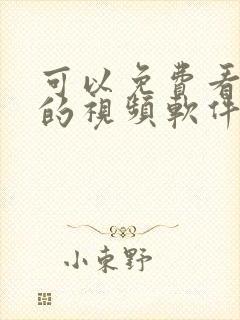 可以免費看
的視頻軟件
小東野